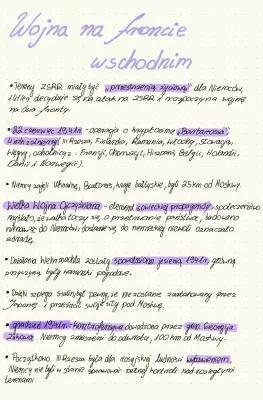 Wojna na froncie
wschodnim
• Tereny ZSRR miały być „przestrzenią życiową” dla Niemców,
Hitler decyduje się na atak na ZSRR i rozpoczyna wojnę
na dwa fronty.
• 22 czerwiec 1941r - operacja o kryptonimie „Barbarossa”.
III Rzesza, Finlandia, Rumunia, Włochy, Słowacja,
Węgry, ochotnicy z: Francji, Chorwacji, Hiszpanii, Belgii, Holandii,
Danii i Norwegii).
• Niemcy zajęli Ukrainę, Białoruś, kraje bałtyckie, byli 25 km od Moskwy.
Wielka Wojna Ojczyźniana - element sowieckiej propagandy, społeczeństwo
myślało, że walka toczy się o przetrwanie państwa, budowano
nienawiść do Niemców, dostanie się do niemieckiej niewoli oznaczało
zdradę.
• Działania Wehrmachtu zostały spowolnione jesienią 1941r, główną
przyczyną były warunki pogodowe.
• Dzięki szpiegom Stalin był pewny, że nie zostanie zaatakowany przez
Japonię i przerzucił swoje siły pod Moskwę.
• grudzień 1941r - kontrofensywa dowodzona przez gen. Gieorgija
Żukowa. Niemcy zmuszeni do odwrotu, 100 km od Moskwy.
• Początkowo III Rzesza była dla rosyjskiej ludności wybawieniem.
Niemcy nie byli w stanie sprawować pełnej kontroli nad rozległymi
terenami.